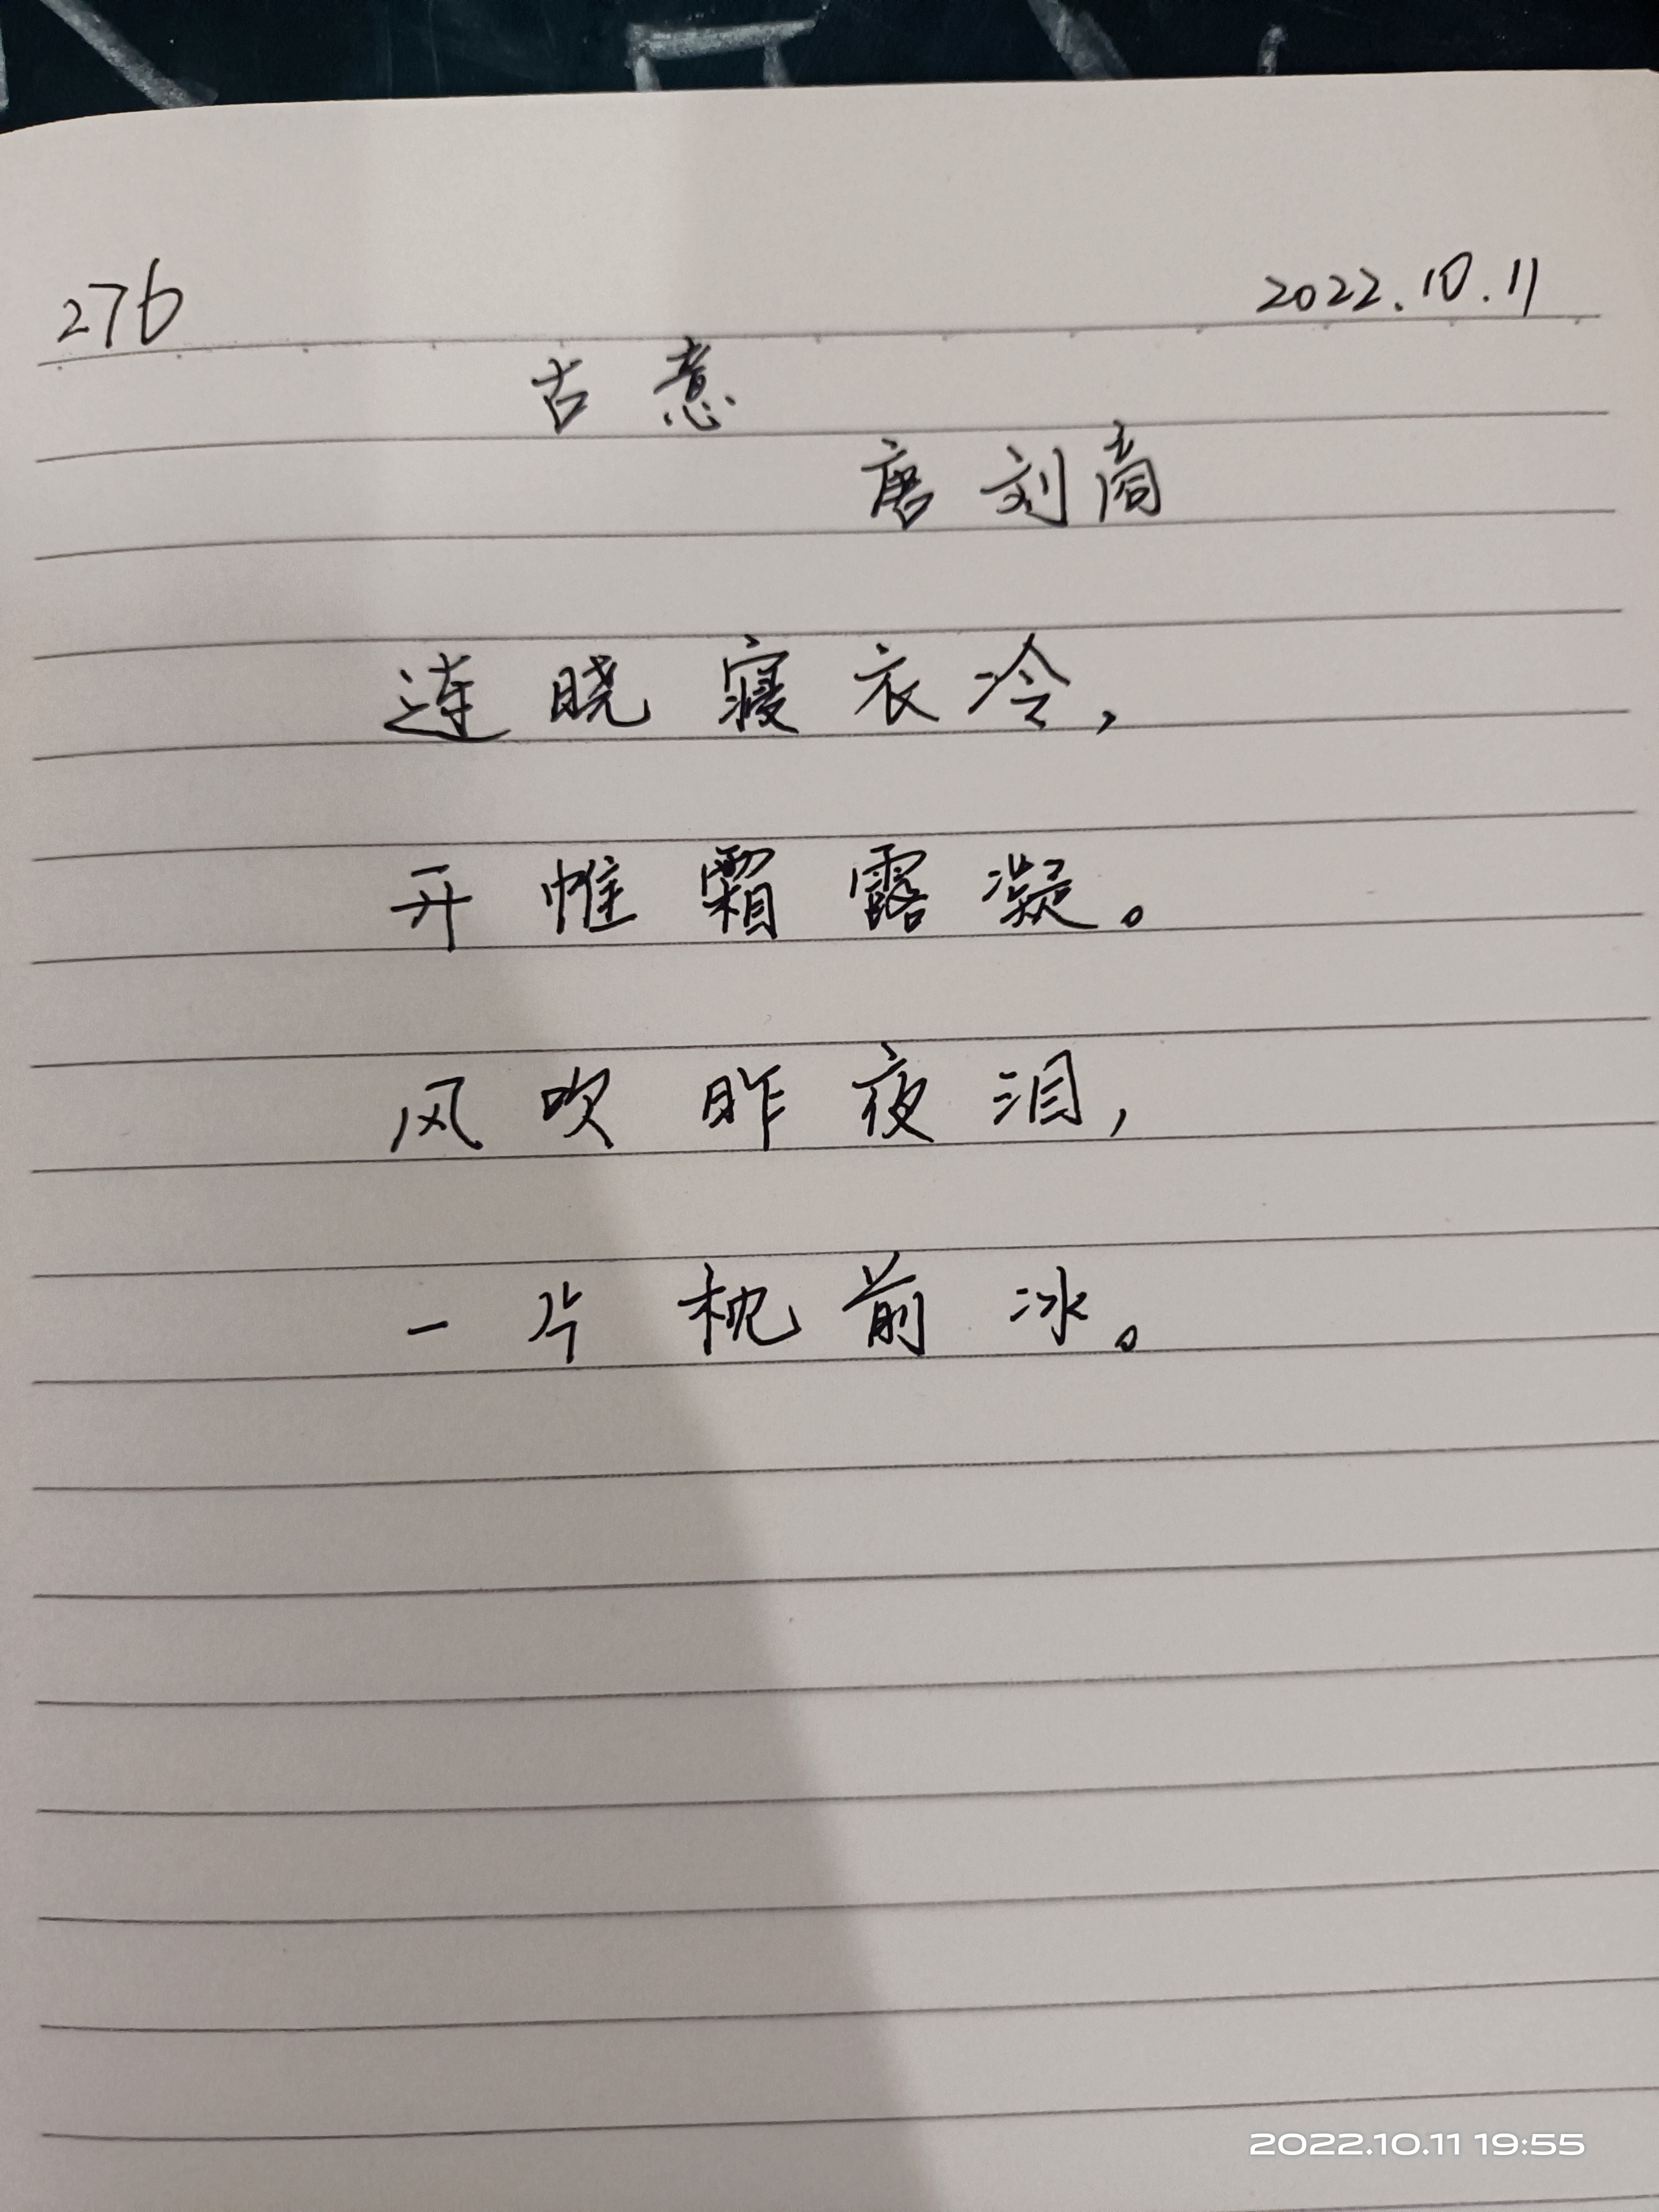 276 2022.10.11
古意
唐 刘商
连晓寝衣冷，
开帷霜露凝。
风吹昨夜泪，
一片枕前冰。
2022.10.11 19:55